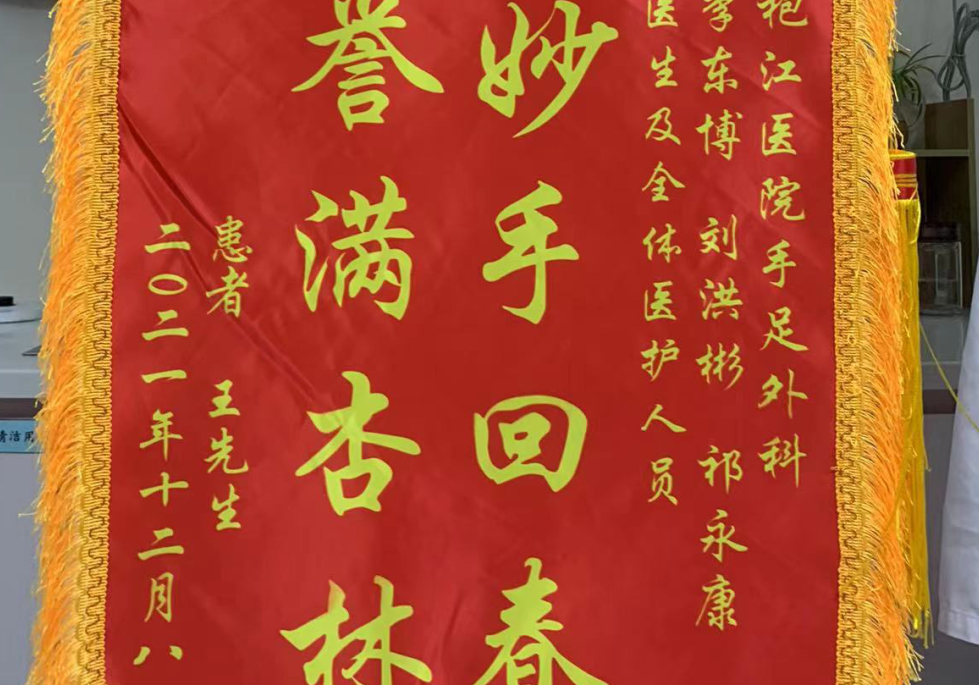 袍江医院手足外科
东博 刘洪彬 祁永康
医生及全体医护人员
妙手回春
誉满杏林
患者 王先生
二〇二一年十二月八
洁用